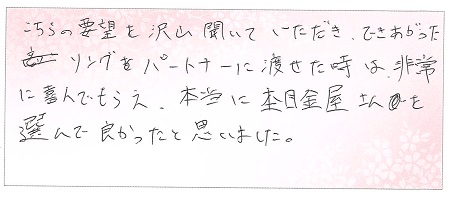 こちらの要望を沢山聞いていただき、できあがった
リングをパートナーに渡せた時は、非常
に喜んでもらえ、本当に杢目金屋さんを
選んで良かったと思いました。